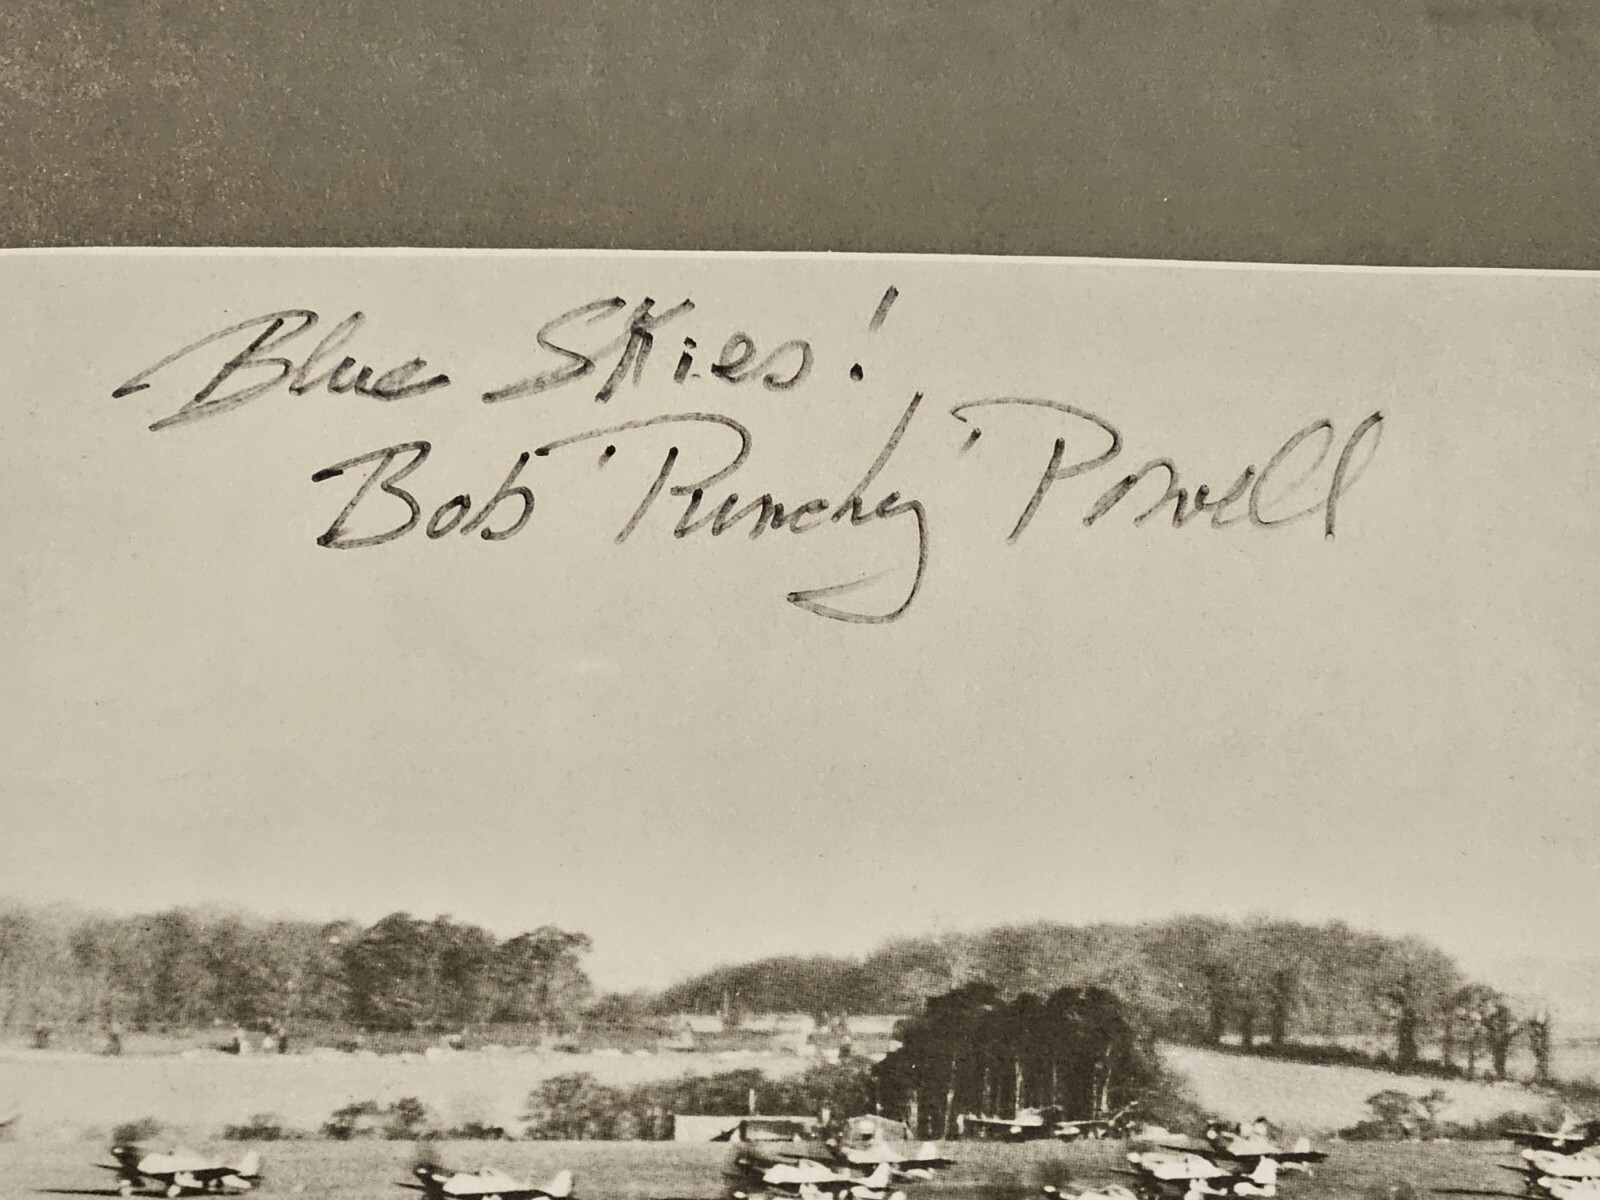 Blue Skies!
Bob "Punchy" Powell